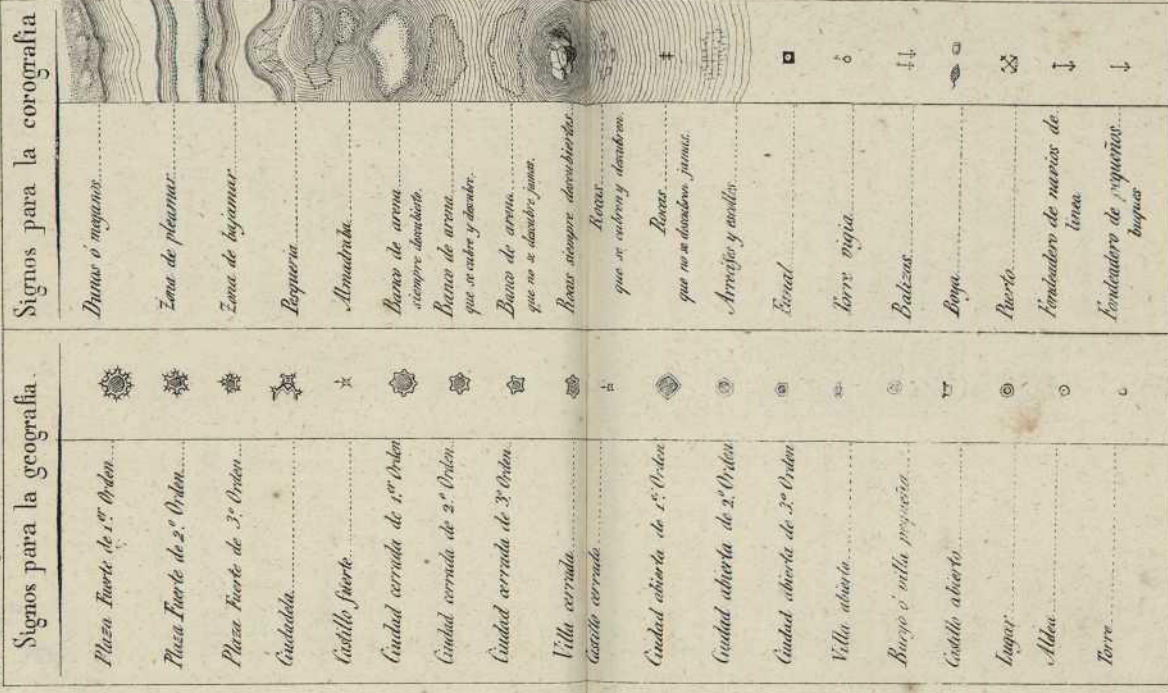 Signos para la geografia
Plaza Fuerte de 1.er Orden
Plaza Fuerte de 2.º Orden
Plaza Fuerte de 3.º Orden
Ciudadela
Castillo fuerte
Ciudad cerrada de 1.er Orden
Ciudad cerrada de 2.º Orden
Ciudad cerrada de 3.º Orden
Villa cerrada
Castillo cerrado
Ciudad abierta de 1.er Orden
Ciudad abierta de 2.º Orden
Ciudad abierta de 3.º Orden
Villa abierta
Burgo ó villa pequeña
Castillo abierto
Lugar
Aldea
Torre
Signos para la corografia
Dunas ó meganos
Zona de pleamar
Zona de bajamar
Pesqueria
Almadraba
Banco de arena
siempre descubierto.
Banco de arena
que se cubre y descubre.
Banco de arena
que no se descubre jamas.
Rocas siempre descubiertas
Rocas
que se cubren y descubren
Rocas
que no se descubren jamas.
Arrecifes y escollos
Faral
Torre vigia
Balizas
Boya
Puerto
Fondeadero de navios de
linea
Fondeadero de pequeños
buques